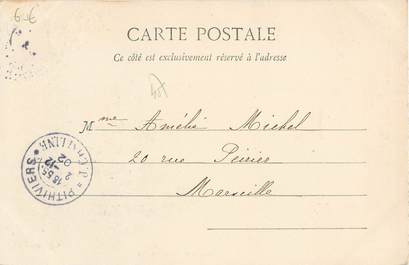 6€
CARTE POSTALE
Ce côté est exclusivement réservé à l'adresse
Mme Amélie Michel
20 rue
Marseille
PITHIVIERS